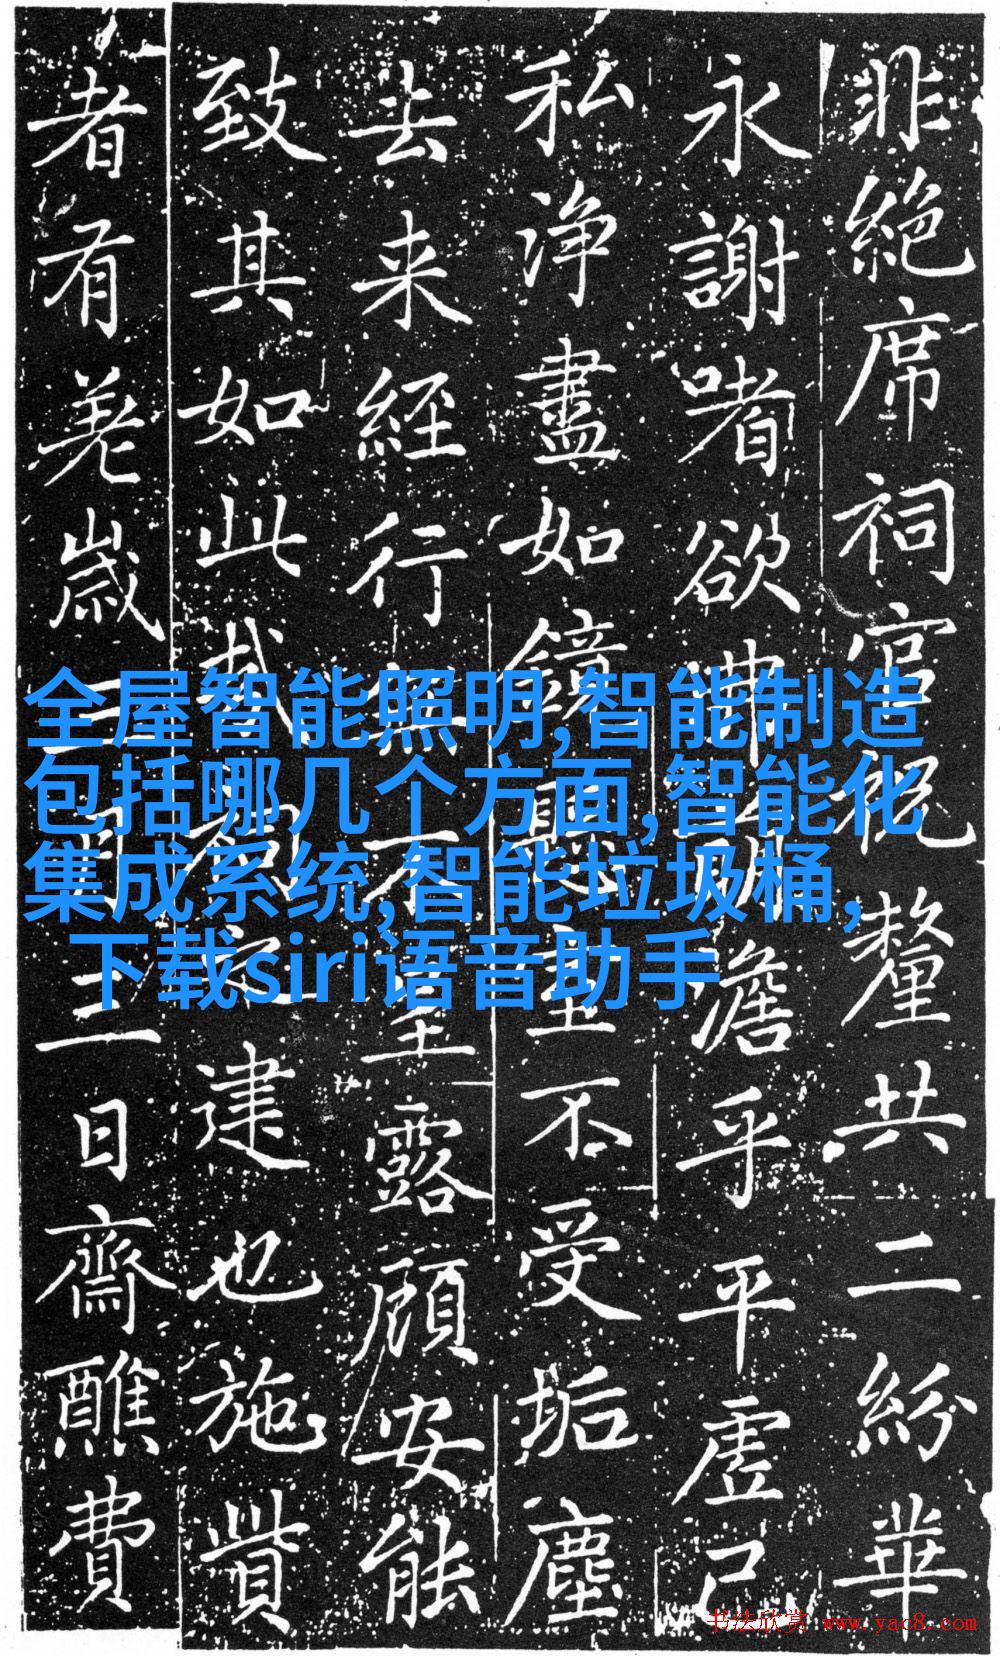 非絕席祠官祝釐共二紛華
永謝嗜欲
澹乎平虛己
私淨盡如鏡
不受垢塵
去来經行
露顧安能
致其如此
建也施貲
者有羌歲
三日齋醮費
全屋智能照明,智能制造
包括哪几个方面,智能化
集成系统,智能垃圾桶,
下载siri语音助手
书法欣赏 www.yac8.com